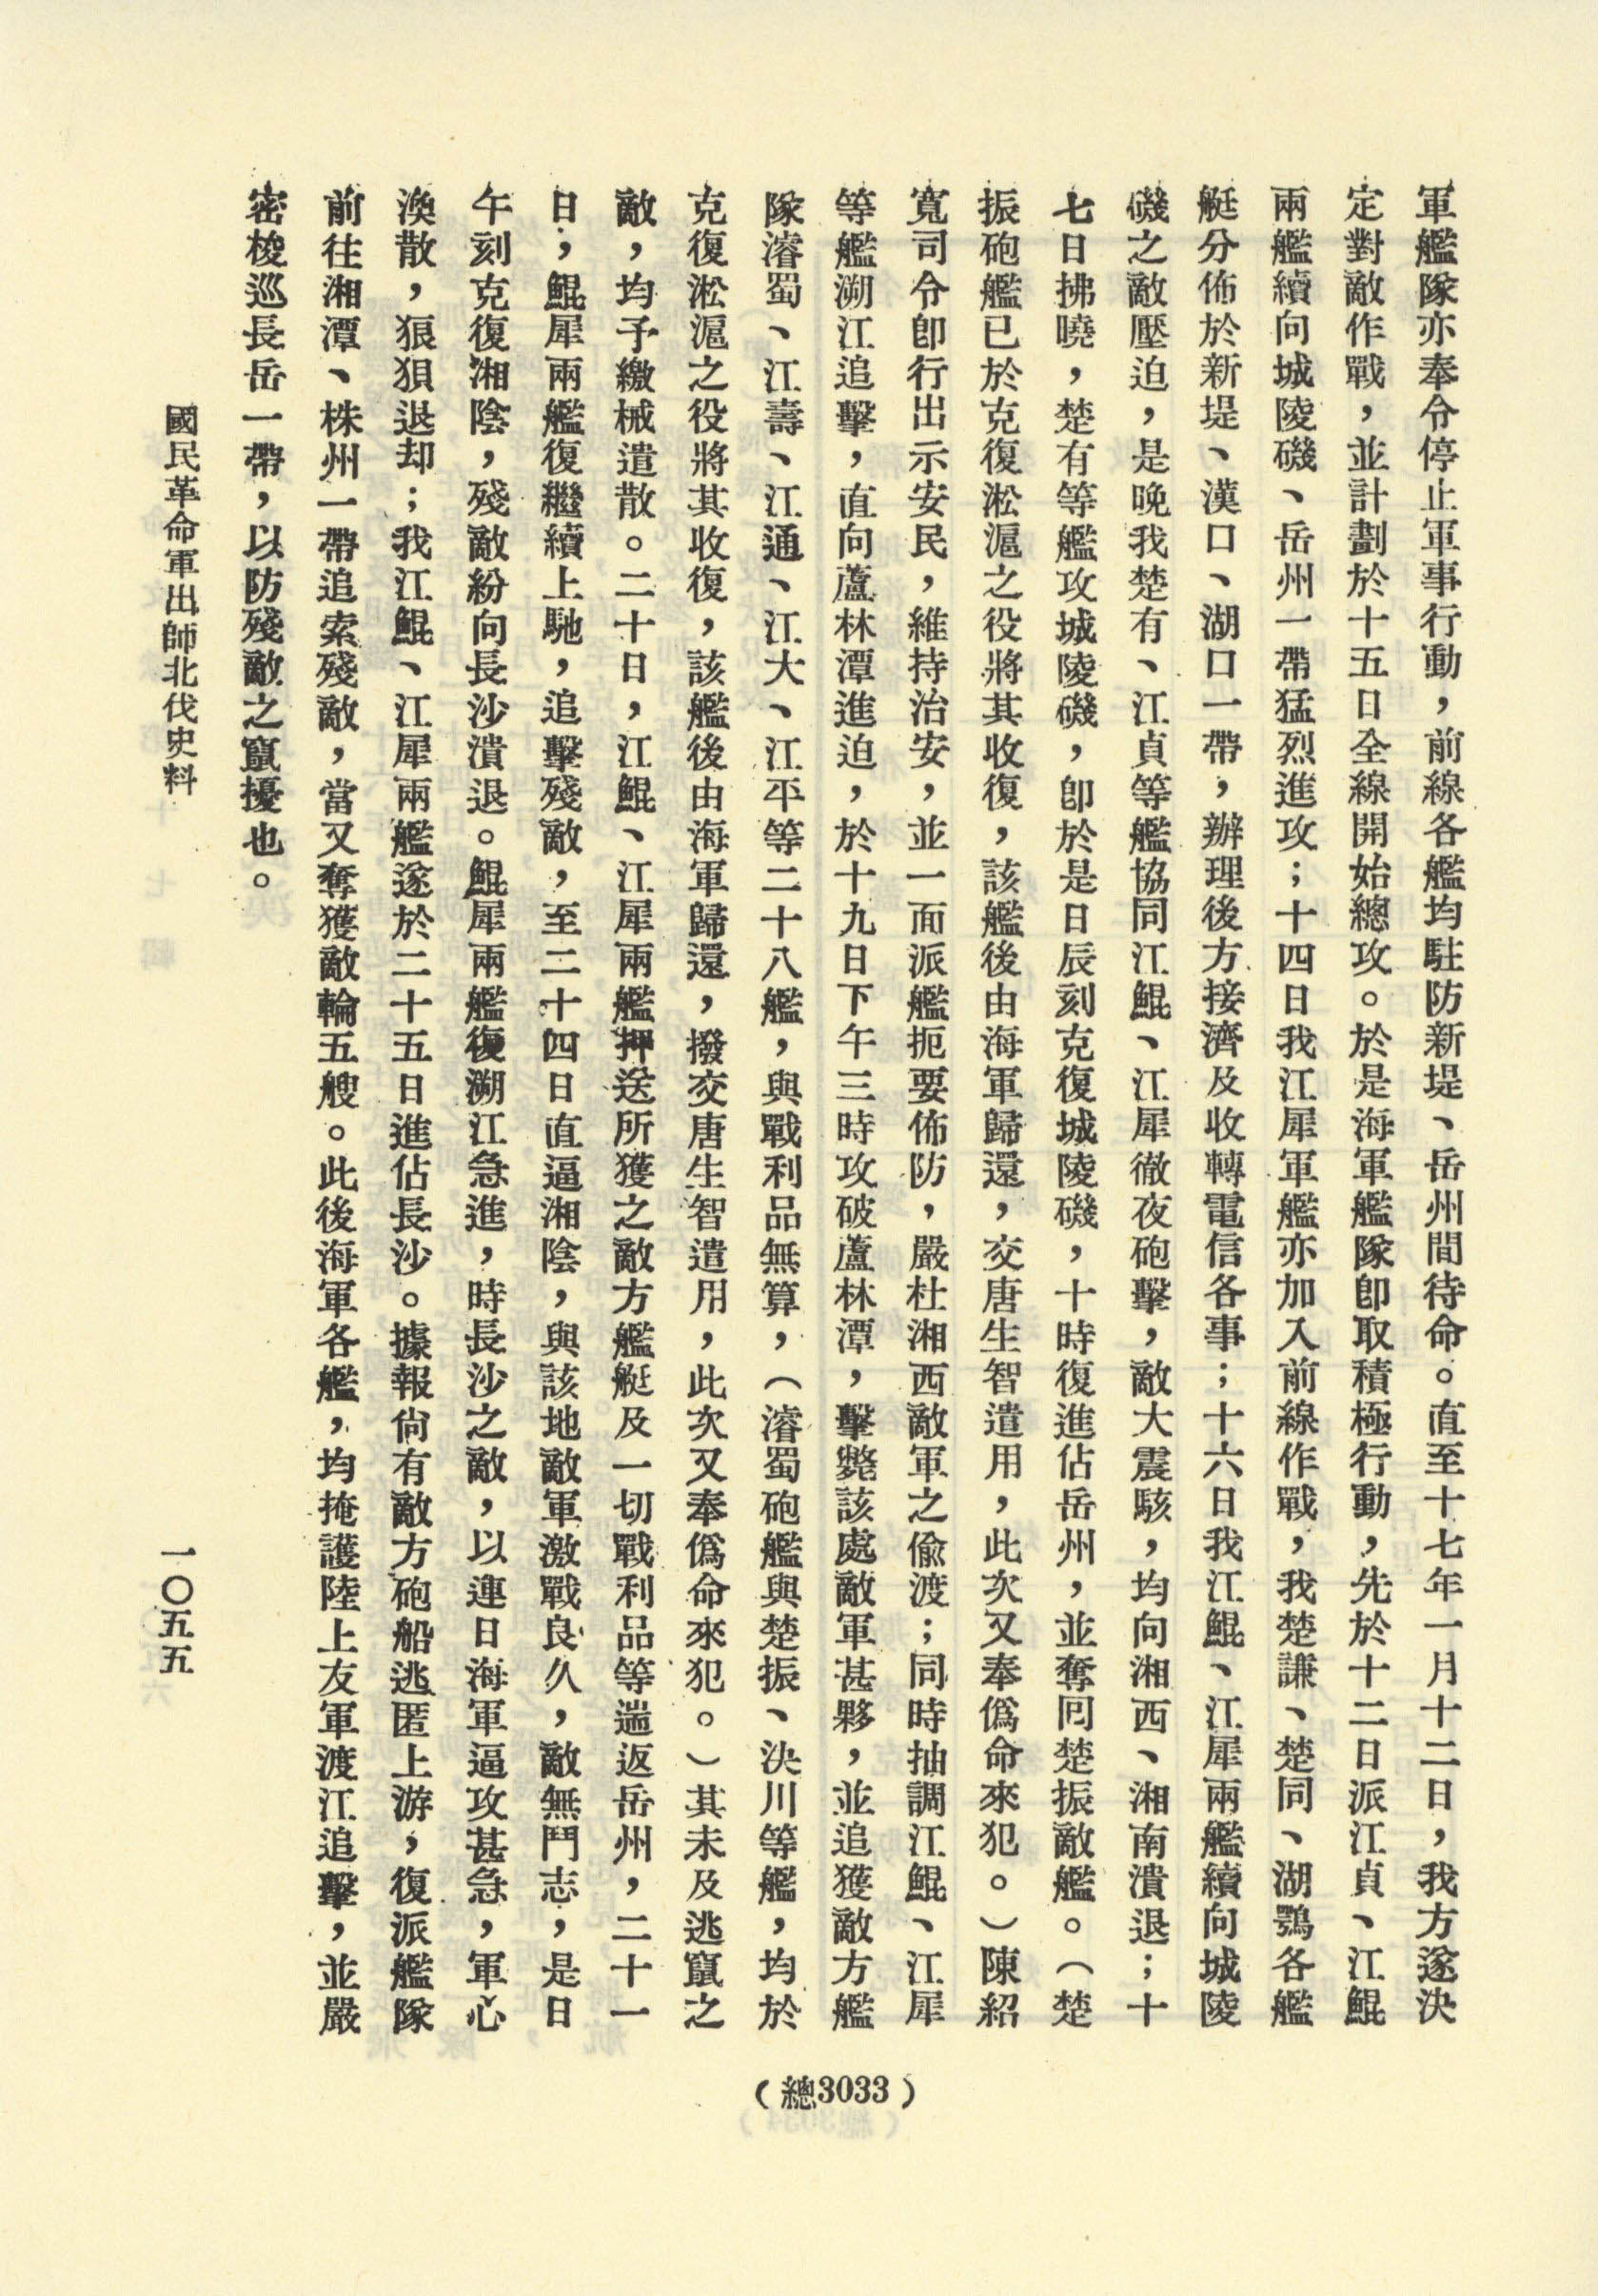 軍艦隊亦奉令停止軍事行動，前線各艦均駐防新堤、岳州間待命。直至十七年一月十二日，我方遂決
定對敵作戰，並計劃於十五日全線開始總攻。於是海軍艦隊卽取積極行動，先於十二日派江貞、江鯤
兩艦續向城陵磯、岳州一帶猛烈進攻；十四日我江犀軍艦亦加入前線作戰，我楚謙、楚同、湖鶚各艦
艇分佈於新堤、漢口、湖口一帶，辦理後方接濟及收轉電信各事；十六日我江鯤、江犀兩艦續向城陵
磯之敵壓迫，是晚我楚有、江貞等艦協同江鯤、江犀徹夜砲擊，敵大震駭，均向湘西、湘南潰退；十
七日拂曉，楚有等艦攻城陵磯，卽於是日辰刻克復城陵磯，十時復進佔岳州，並奪囘楚振敵艦。（楚
振砲艦已於克復淞滬之役將其收復，該艦後由海軍歸還，交唐生智遣用，此次又奉僞命來犯。）陳紹
寬司令卽行出示安民，維持治安，並一面派艦扼要佈防，嚴杜湘西敵軍之偸渡；同時抽調江鯤、江犀
等艦溯江追擊，直向蘆林潭進迫，於十九日下午三時攻破蘆林潭，擊斃該處敵軍甚夥，並追獲敵方艦
隊濬蜀、江壽、江通、江大、江平等二十八艦，與戰利品無算，（濬蜀砲艦與楚振、決川等艦，均於
克復淞滬之役將其收復，該艦後由海軍歸還，撥交唐生智遣用，此次又奉僞命來犯。）其未及逃竄之
敵，均予繳械遣散。二十日，江鯤、江犀兩艦押送所獲之敵方艦艇及一切戰利品等遄返岳州，二十一
日，鯤犀兩艦復繼續上馳，追擊殘敵，至二十四日直逼湘陰，與該地敵軍激戰良久，敵無鬥志，是日
午刻克復湘陰，殘敵紛向長沙潰退。鯤犀兩艦復溯江急進，時長沙之敵，以連日海軍逼攻甚急，軍心
渙散，狼狽退却；我江鯤、江犀兩艦遂於二十五日進佔長沙。據報尙有敵方砲船逃匿上游，復派艦隊
前往湘潭、株州一帶追索殘敵，當又奪獲敵輪五艘。此後海軍各艦，均掩護陸上友軍渡江追擊，並嚴
密梭巡長岳一帶，以防殘敵之竄擾也。
國民革命軍出師北伐史料
一〇五五
（總3033）